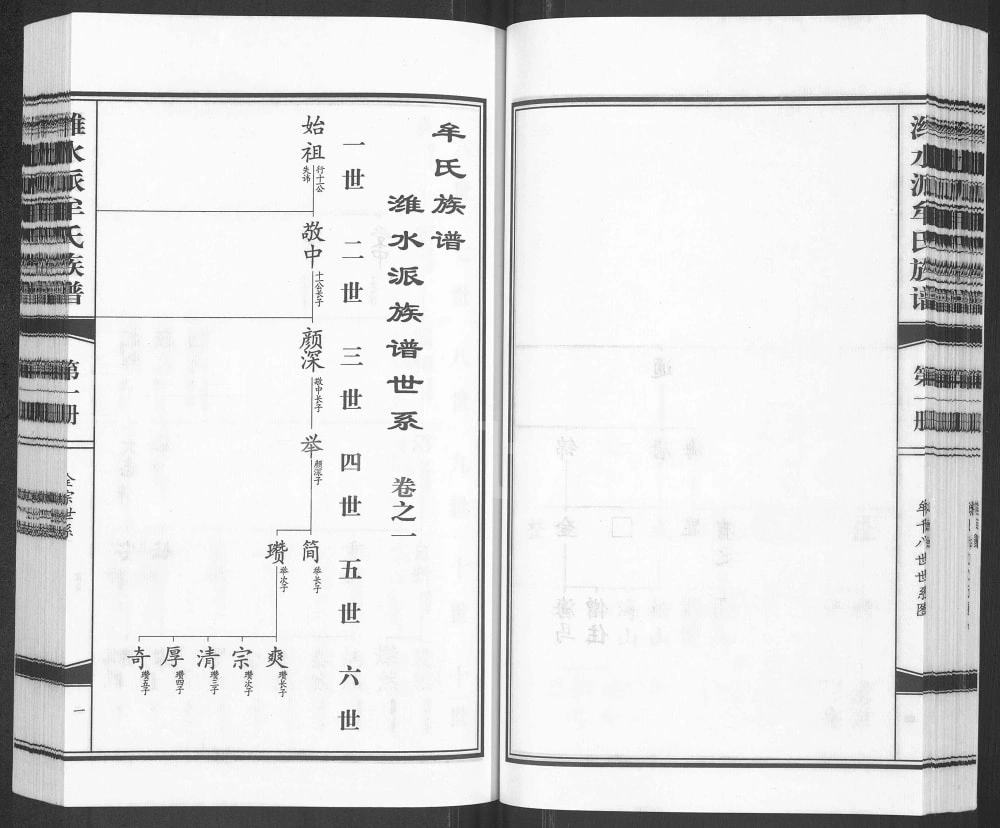 牟氏族谱
潍水派族谱世系 卷之一
一世 二世 三世 四世 五世 六世
始祖 行十二公 失讳
敬中 十二公长子
颜深 敬中长子
举 颜深子
简 举长子
瓒 举次子
爽 瓒长子
宗 瓒次子
清 瓒三子
厚 瓒四子
奇 瓒五子
潍水派牟氏族谱
第一册
全宗世系
一
潍水派牟氏族谱
第一册